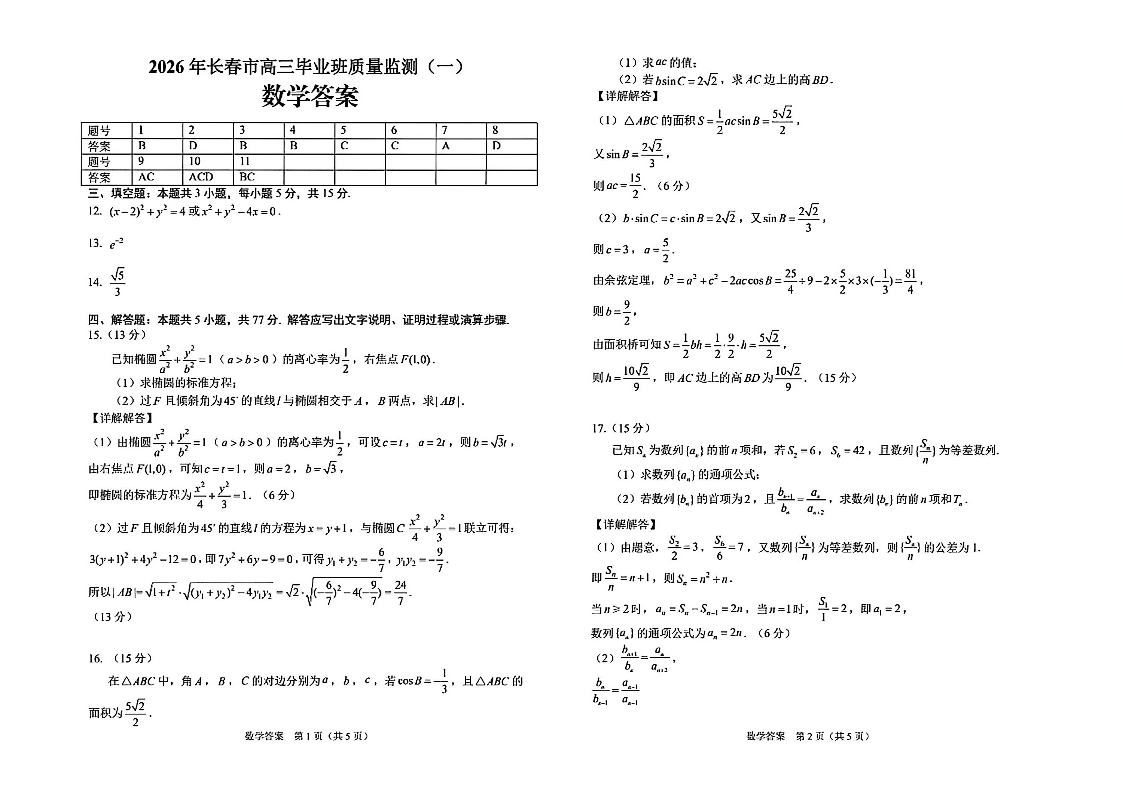 2026 年长春市高三毕业班质量监测（一）
数学答案
题号 1 2 3 4 5 6 7 8
答案 B D B B C C A D
题号 9 10 11
答案 AC ACD BC
三、填空题：本题共 3 小题，每小题 5 分，共 15 分.
12. (x−2)²+y²=4 或 x²+y²−4x=0.
13. e⁻²
14. √5/3
四、解答题：本题共 5 小题，共 77 分. 解答应写出文字说明、证明过程或演算步骤.
15.（13 分）
已知椭圆 x²/a²+y²/b²=1（a>b>0）的离心率为 1/2，右焦点 F(1,0).
（1）求椭圆的标准方程；
（2）过 F 且倾斜角为 45° 的直线 l 与椭圆相交于 A，B 两点，求|AB|.
【详解解答】
（1）由椭圆 x²/a²+y²/b²=1（a>b>0）的离心率为 1/2，可设 c=t，a=2t，则 b=√3t，
由右焦点 F(1,0)，可知 c=t=1，则 a=2，b=√3，
即椭圆的标准方程为 x²/4+y²/3=1.（6 分）
（2）过 F 且倾斜角为 45° 的直线 l 的方程为 x=y+1，与椭圆 C x²/4+y²/3=1 联立可得：
3(y+1)²+4y²−12=0，即 7y²+6y−9=0，可得 y₁+y₂=−6/7，y₁y₂=−9/7.
所以|AB|=√(1+t²)·√((y₁+y₂)²−4y₁y₂)=√2·√((−6/7)²−4(−9/7))=24/7.
（13 分）
16. （15 分）
在△ABC 中，角 A，B，C 的对边分别为 a，b，c，若 cosB=−1/3，且△ABC 的
面积为 5√2/2.
数学答案 第 1 页（共 5 页）
（1）求 ac 的值；
（2）若 bsinC=2√2，求 AC 边上的高 BD.
【详解解答】
（1）△ABC 的面积 S=1/2 acsinB=5√2/2，
又 sinB=2√2/3，
则 ac=15/2.（6 分）
（2）b·sinC=c·sinB=2√2，又 sinB=2√2/3，
则 c=3，a=5/2.
由余弦定理，b²=a²+c²−2accosB=25/4+9−2×5/2×3×(−1/3)=81/4，
则 b=9/2，
由面积桥可知 S=1/2 bh=1/2·9/2·h=5√2/2，
则 h=10√2/9，即 AC 边上的高 BD 为 10√2/9.（15 分）
17.（15 分）
已知 Sₙ 为数列{aₙ}的前 n 项和，若 S₂=6，S₆=42，且数列{Sₙ/n}为等差数列.
（1）求数列{aₙ}的通项公式；
（2）若数列{bₙ}的首项为 2，且 bₙ₊₁/bₙ=aₙ/aₙ₊₂，求数列{bₙ}的前 n 项和 Tₙ.
【详解解答】
（1）由题意，S₂/2=3，S₆/6=7，又数列{Sₙ/n}为等差数列，则{Sₙ/n}的公差为 1.
即 Sₙ/n=n+1，则 Sₙ=n²+n.
当 n≥2 时，aₙ=Sₙ−Sₙ₋₁=2n，当 n=1 时，S₁/1=2，即 a₁=2，
数列{aₙ}的通项公式为 aₙ=2n.（6 分）
（2）bₙ₊₁/bₙ=aₙ/aₙ₊₂，
bₙ/bₙ₋₁=aₙ₋₁/aₙ₋₁
数学答案 第 2 页（共 5 页）